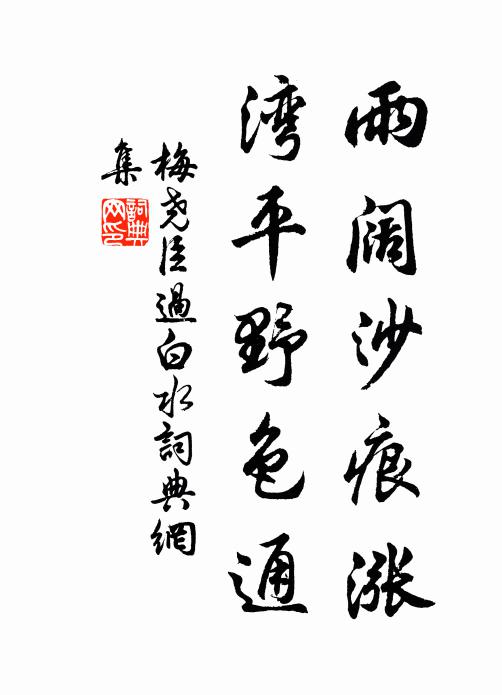 雨阔沙痕涨
湾平野色通
梅尧臣過白水詞典網
集
詞典网印